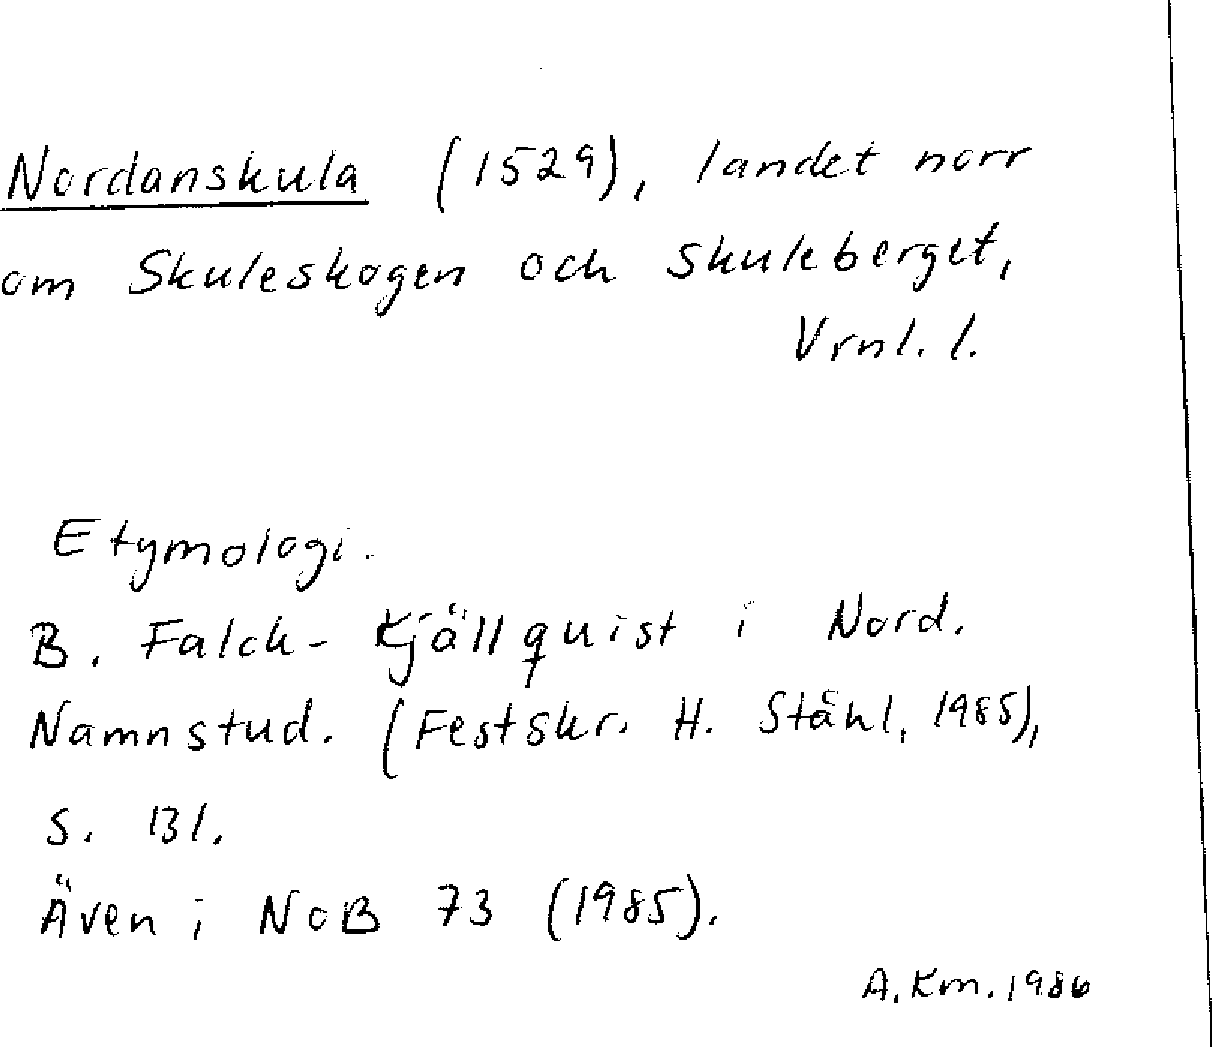 Nordanskula (1529), landet norr
om Skuleskogen och Skuleberget,
Vrnl. l.
Etymologi.
B. Falck-Kjällquist i Nord.
Namnstud. (Festskr. H. Ståhl, 1985),
s. 131.
Även i NoB 73 (1985).
A. Km. 1986